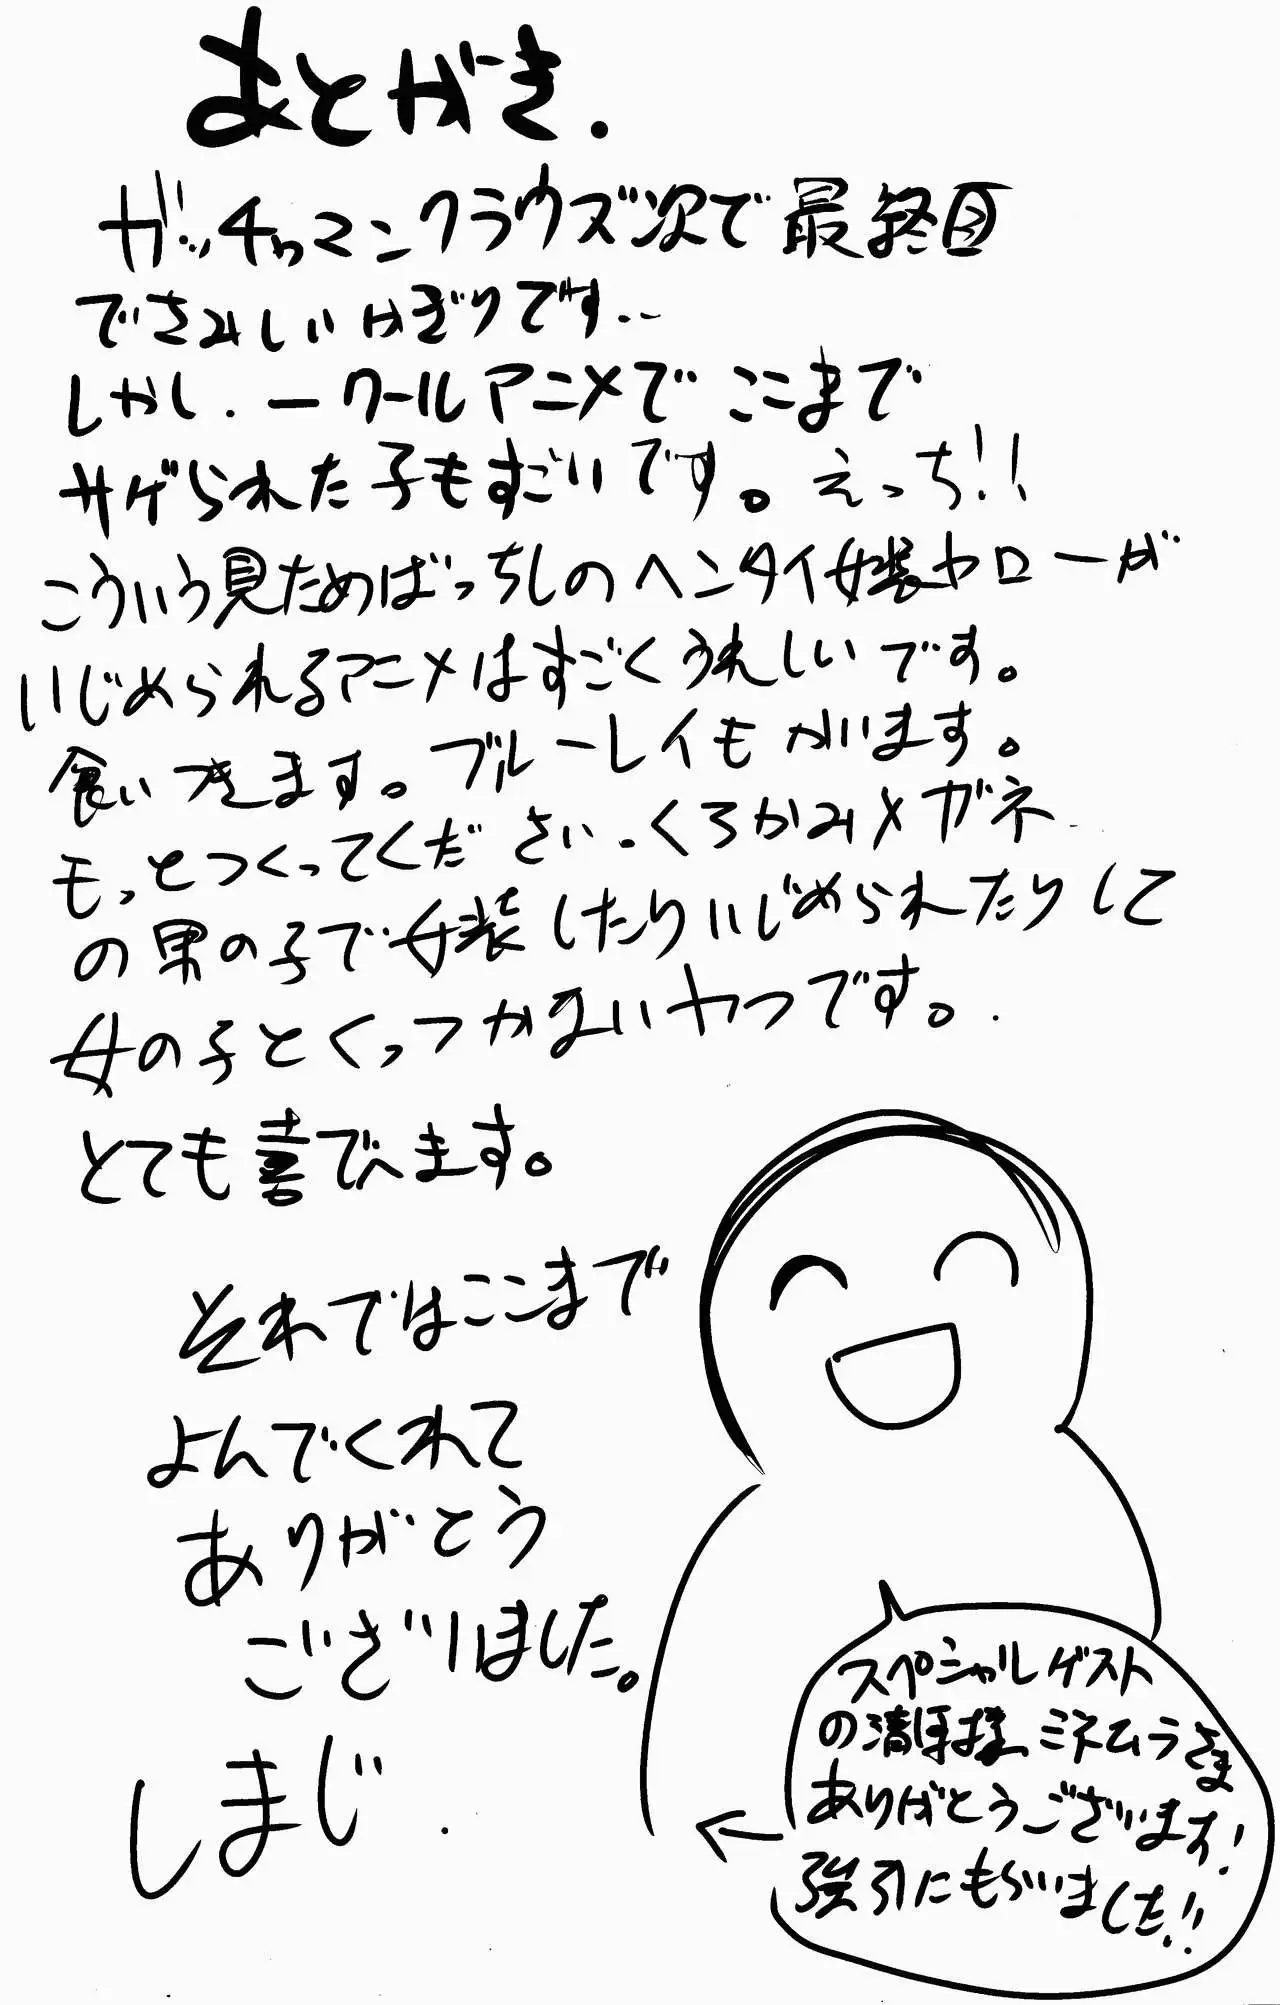 あとがき.
ガッチャマンクラウズ次で最終回
でさみしいかぎりです..
しかし.一クールアニメでここまで
サゲられた子もすごいです。えっち!!
こういう見ためばっちしのヘンタイ女装ヤローが
いじめられるアニメはすごくうれしいです。
食いつきます。ブルーレイもかいます。
もっとつくってください.くろかみメガネ
の男の子で女装したりいじめられたりして
女の子とくっつかないやつです。
とても喜びます。
それではここまで
よんでくれて
ありがとう
ございました。
しまじ.
スペシャルゲスト
の清様 ミネムラさま
ありがとうございます!
強引にもらいました!!